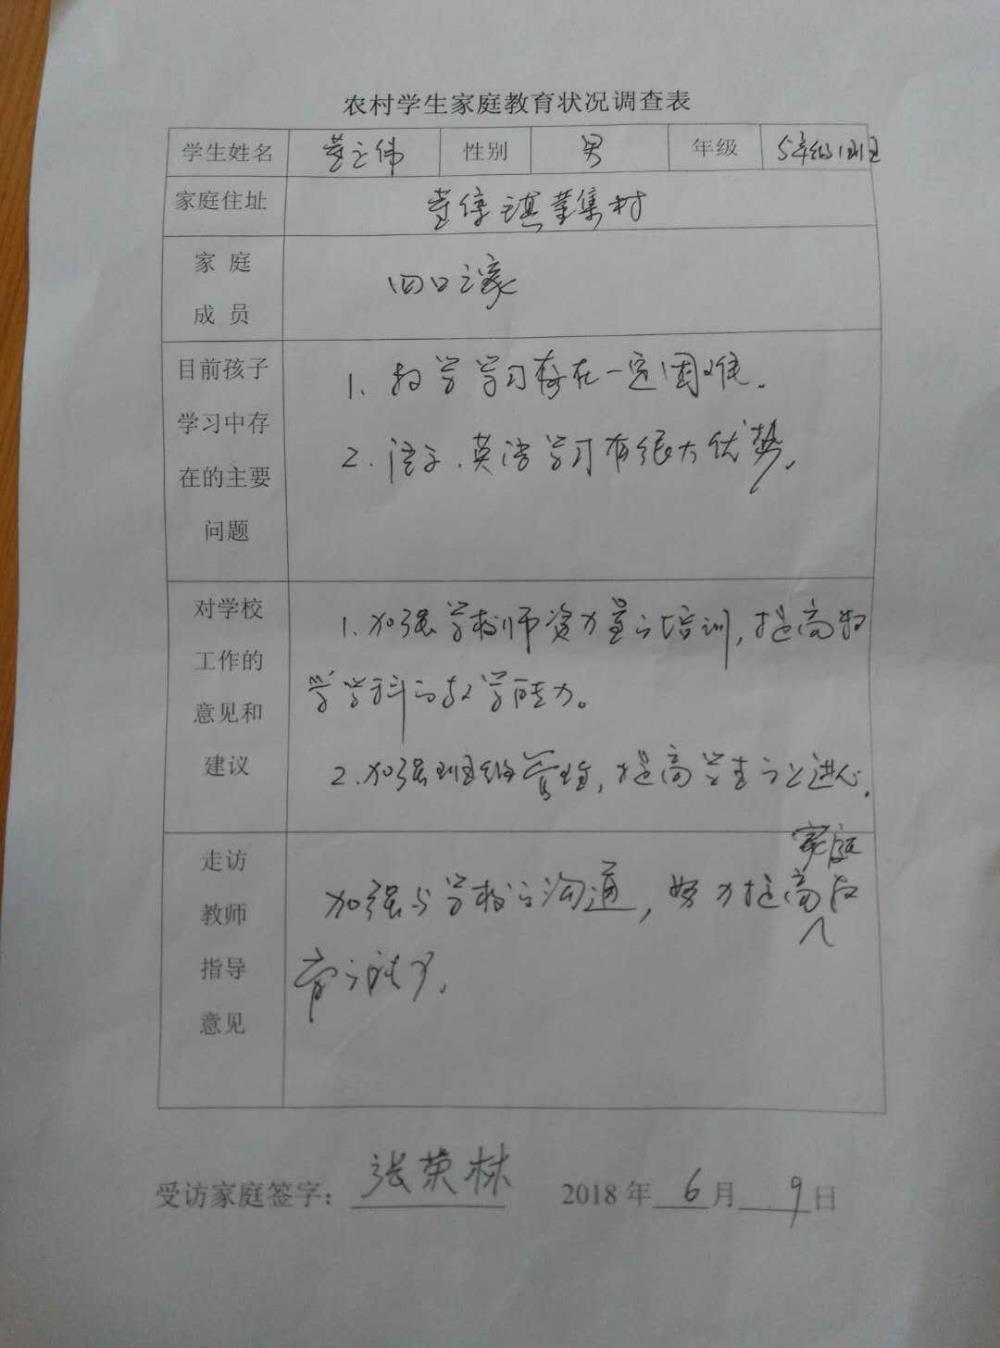 农村学生家庭教育状况调查表
学生姓名 董立伟 性别 男 年级 5年级1班
家庭住址 集村
家庭 四口之家
成员
目前孩子 1. 数学学习存在一定困难。
学习中存 2. 语文、英语学习有很大优势。
在的主要
问题
对学校 1. 加强学校师资力量的培训，提高数
工作的 学学科的教学能力。
意见和
建议 2. 加强班级管理，提高学生的上进心。
走访 家庭
教师 加强与学校的沟通，努力提高教
指导 育的能力。
意见
受访家庭签字： 张荣林 2018年 6 月 9 日